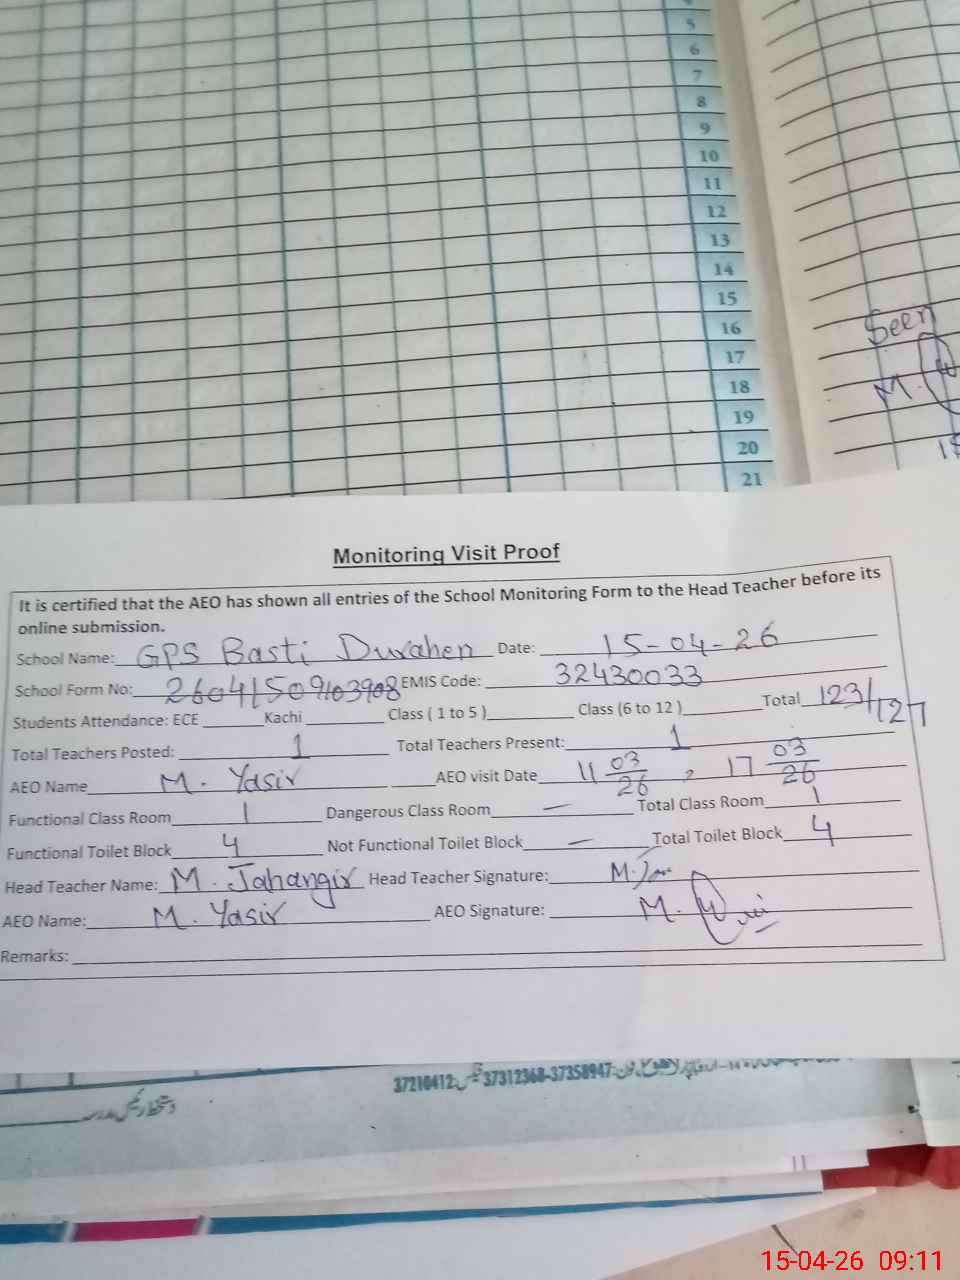 5
6
7
8
9
10
11
12
13
14
15
16
17
18
19
20
21
Seen
Monitoring Visit Proof
It is certified that the AEO has shown all entries of the School Monitoring Form to the Head Teacher before its
online submission.
School Name: GPS Basti Durahen Date: 15-04-26
School Form No: 26041509103908 EMIS Code: 32430033
Students Attendance: ECE Kachi Class ( 1 to 5 ) Class (6 to 12 ) Total 123/127
Total Teachers Posted: 1 Total Teachers Present: 1
AEO Name M. Yasir AEO visit Date 11 03/26 , 17 03/26
Functional Class Room 1 Dangerous Class Room — Total Class Room 1
Functional Toilet Block 4 Not Functional Toilet Block — Total Toilet Block 4
Head Teacher Name: M. Jahangir Head Teacher Signature:
AEO Name: M. Yasir AEO Signature: M.
Remarks:
37210412 37312368-37358947
15-04-26 09:11